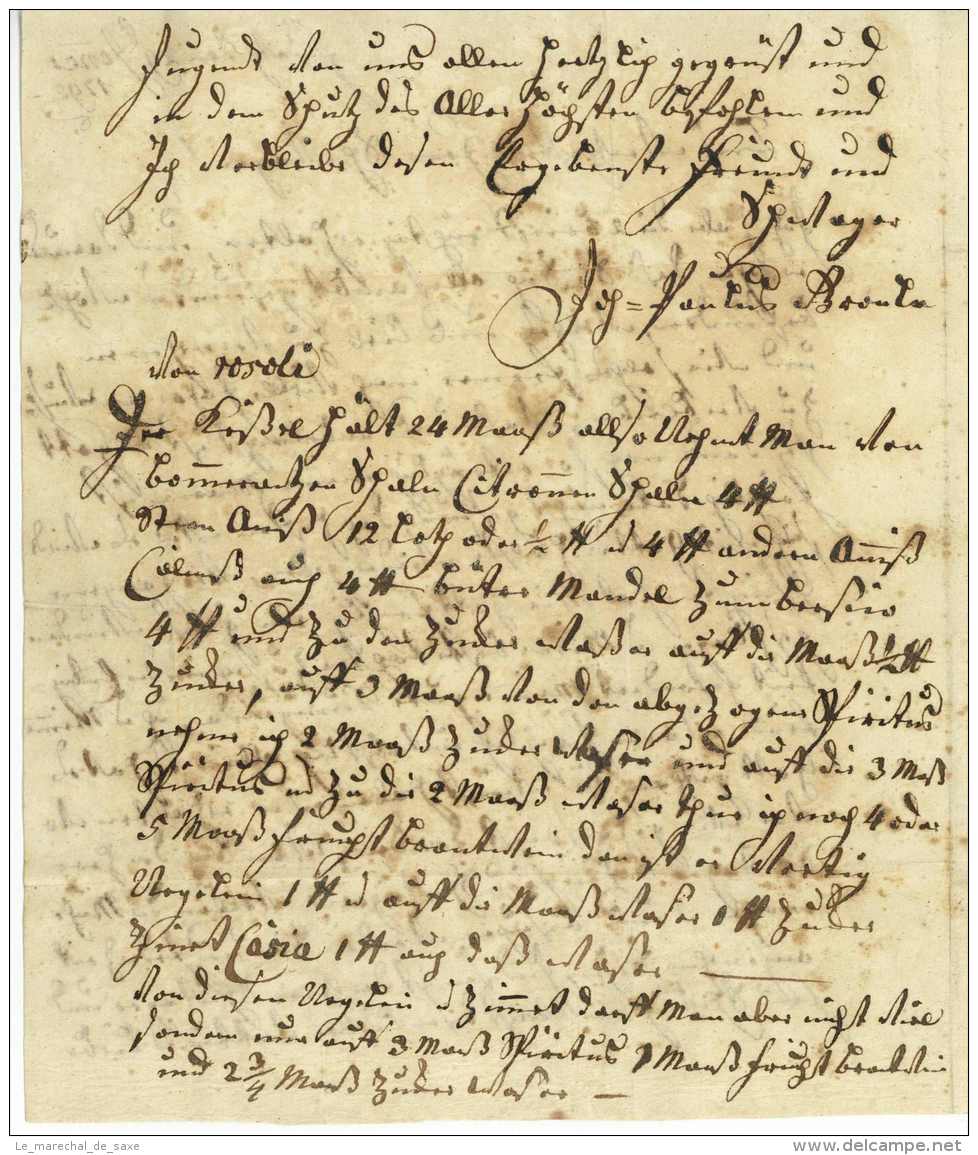 Jugendt von uns allen hertzlich gegrüst und
in den Schutz des Aller Höchsten befohlen und
Ich verbleibe desen Ergebenste Freundt und
Schwager
Joh= Paulus
Von rosoli
Der Keßel hält 24 Maaß allso Nehmt Man von
bom̅erantzen Schaln Citronnen Schaln 4 ℔
Stern Aniß 12 Loth oder ½ ℔ 4 ℔ andern An̅iß
Calmuß auch 4 ℔ bittre Mandel zum
4 ℔ und zu den Zucker waßer auff die Maaß ½ ℔
Zucker, auff 3 Maaß von den abgezogene Spiritus
nehme ich 2 Maaß Zucker waser und auff die 3 Maß
Spiritus und zu die 2 Maaß waser thue ich noch 4 oder
5 Maaß frucht brantwein dan ist er vertig
Negelein 1 ℔ auff die Maaß waser 1 ℔ Zucker
Zimet Casia 1 ℔ auch daß waser
Von diesen Negelein Zim̅et darff Man aber nicht viel
sondern nur auff 3 Maaß Spiritus 1 Maaß frucht brantwein
und 2 3/4 Maaß Zucker waser
Le_marechal_de_saxe
www.delcampe.net